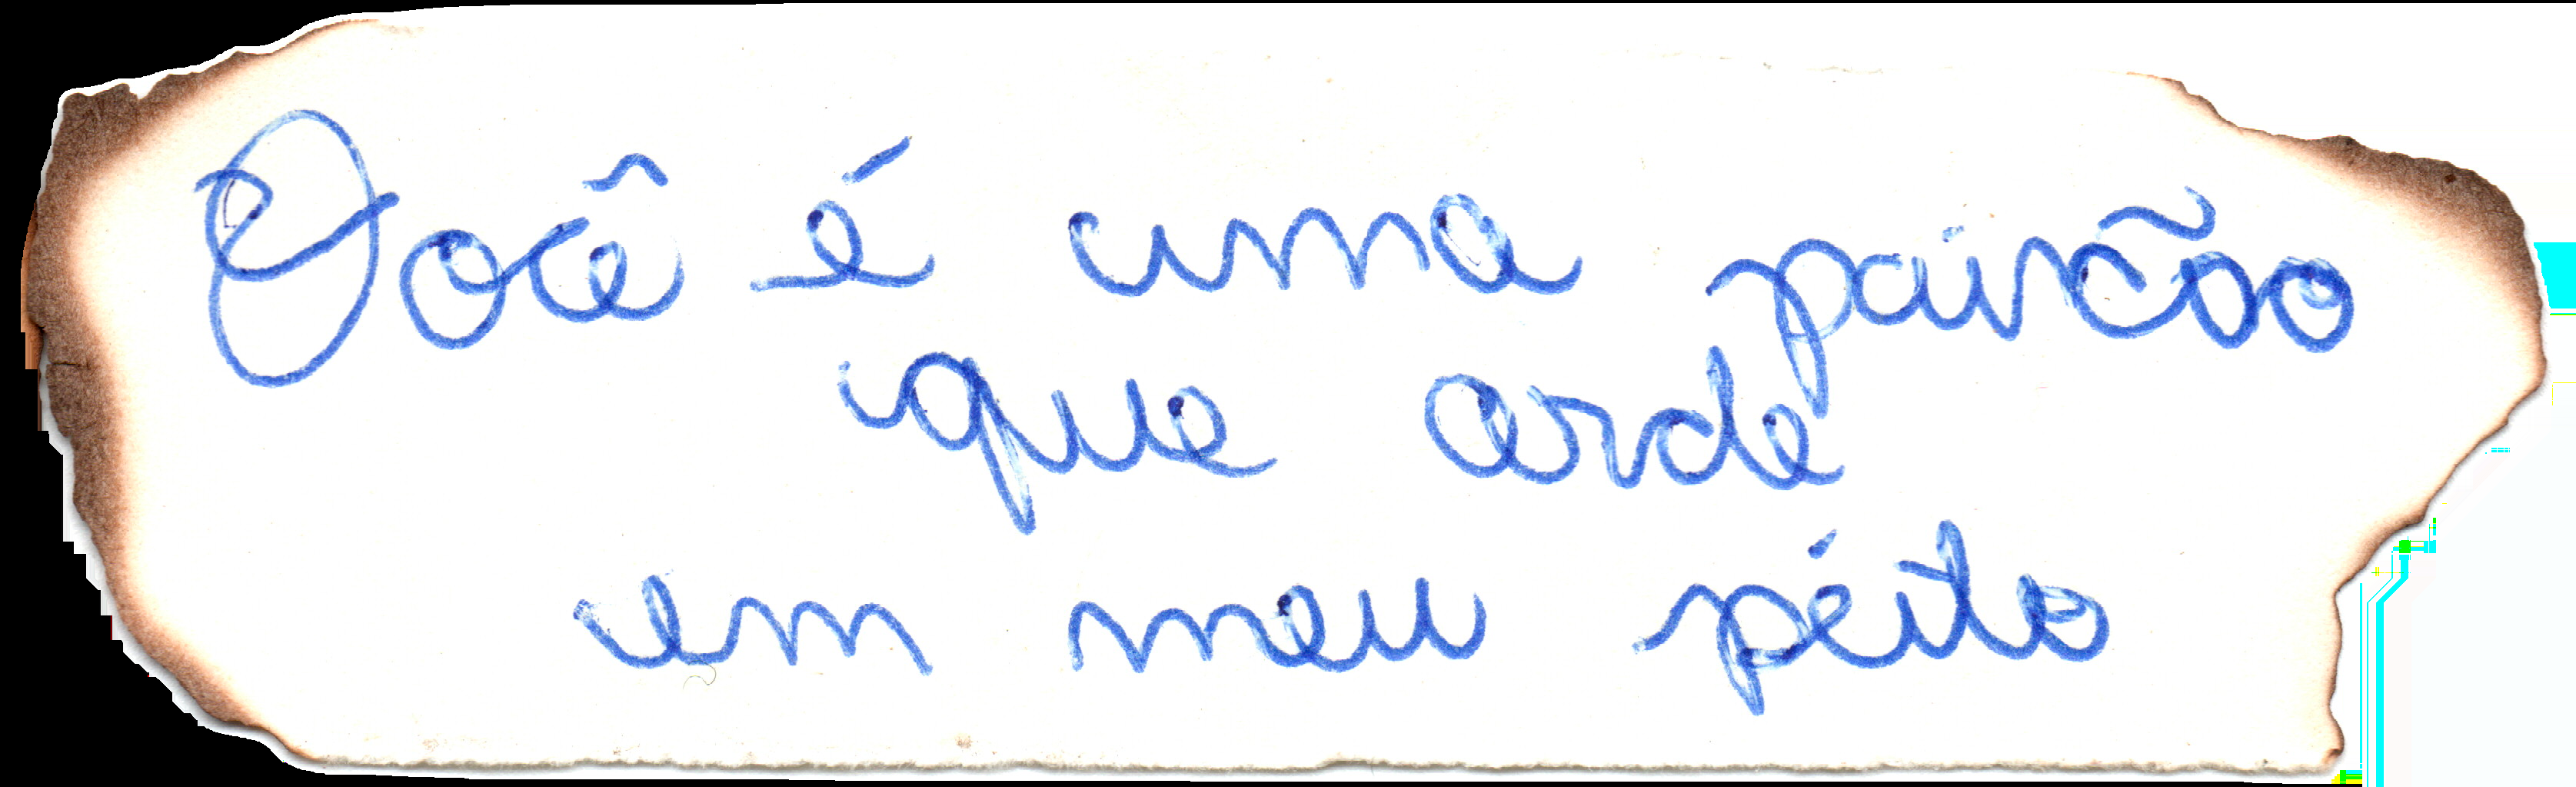 Você é uma paixão
que arde
em meu peito